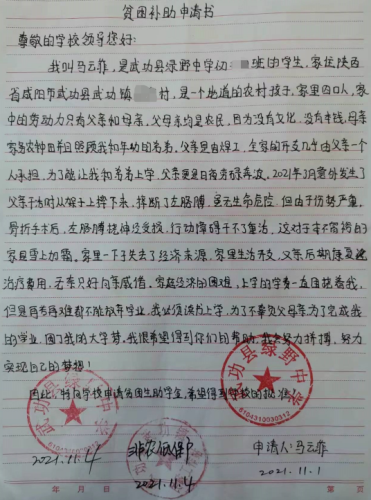 贫困补助申请书
尊敬的学校领导您好:
我叫马云菲,是武功县绿野中学初 班的学生,家住陕西
省咸阳市武功县武功镇 村,是一个地道的农村孩子,家里四口人,家
中的劳动力只有父亲和母亲,父母亲均是农民,因为没有文化,没有手钱,母亲
家务农种田养日照顾我和年幼的弟弟,父亲是电焊工,全家的开支几乎由父亲一个
人承担,为了能让我和弟弟上学,父亲更是日夜劳碌奔波,2021年3月意外发生了
父亲干活时从架子上摔下来,摔断了左胳膊,虽无生命危险,但由于伤势严重,
骨折手术后,左胳膊桡神经受损,行动障碍干不了重活,这对于本不富裕的
家且雪上加霜,家里一下子失去了经济来源,家里生活开支,父亲后期康复
治疗费用,无奈只好向亲戚借,家庭经济的困难,上学的学费一直困扰着我,
但是再苦再难都不能放弃学业,我必须读书上学,为了不辜负父母亲,为了完成我
的学业,圆了我的大学梦,我很希望得到你们的帮助,我会努力拼搏,努力
实现自己的梦想!
因此,特向学校申请贫困生助学金,希望得到学校的批准。
武功县绿野中学
6104310030312
武功县绿野中学
6104310030312
非农低保户
申请人:马云菲
2021.11.4
2021.11.4
2021.11.1
年 月 日
第 页